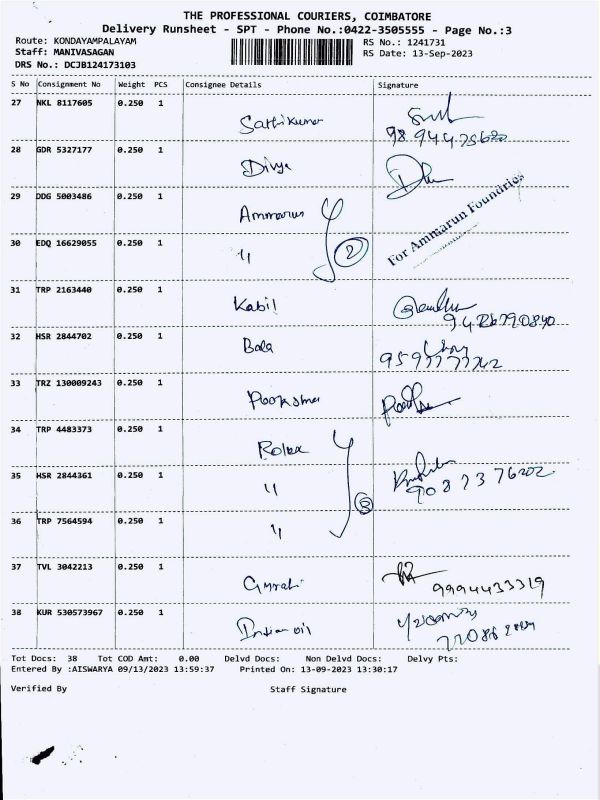 THE PROFESSIONAL COURIERS, COIMBATORE
Delivery Runsheet - SPT - Phone No.:0422-3505555 - Page No.:3
Route: KONDAYAMPALAYAM RS No.: 1241731
Staff: MANIVASAGAN RS Date: 13-Sep-2023
DRS No.: DCJB124173103
S No Consignment No Weight PCS Consignee Details Signature
27 NKL 8117605 0.250 1
Sathikumar
28 GDR 5327177 0.250 1
Divya
29 DDG 5003486 0.250 1
Ammarun
For Ammarun Foundries
30 EDQ 16629055 0.250 1
" 2
31 TRP 2163440 0.250 1
Kabil
32 HSR 2844702 0.250 1
Bala
33 TRZ 130009243 0.250 1
34 TRP 4483373 0.250 1
Rolex
35 HSR 2844361 0.250 1
" 3
36 TRP 7564594 0.250 1
"
37 TVL 3042213 0.250 1
9994433319
38 KUR 530573967 0.250 1
Indian oil
Tot Docs: 38 Tot COD Amt: 0.00 Delvd Docs: Non Delvd Docs: Delvy Pts:
Entered By :AISWARYA 09/13/2023 13:59:37 Printed On: 13-09-2023 13:30:17
Verified By Staff Signature